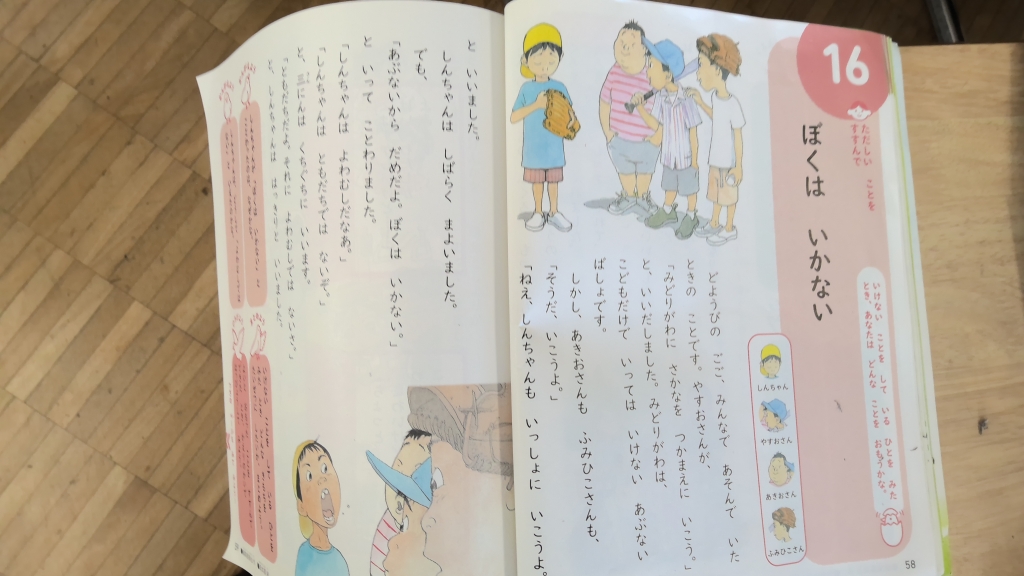 16
ただしい ことを
すすんで
ぼくは いかない
いけない ことを して いる ひとを みた
とき、あなたは どんな ことを おもうかな。
しんちゃん
やすおさん
あきおさん
ふみひこさん
どようびの ごご、みんなで あそんで いた
ときの ことです。やすおさんが、
「みどりがわに さかなを つかまえに いこう。」
と、いいだしました。みどりがわは、
こどもだけで いっては いけない あぶない
ばしょです。
しかし、あきおさんも ふみひこさんも、
「そうだ、いこうよ。」
「ねえ、しんちゃんも いっしょに いこうよ。
58
と いいました。
しんちゃんは しばらく まよいました。
でも、
「あぶないから だめだよ。ぼくは いかない。」
と いって ことわりました。
「しんちゃんは よわむしだなあ。」
「しんちゃんは ともだちでは ないぞ。」
と、三にんは くちぐちに いいます。
「ともだちだよ。それに よわむしでは ないさ。」
と、しんちゃんは はっきりと いいました。